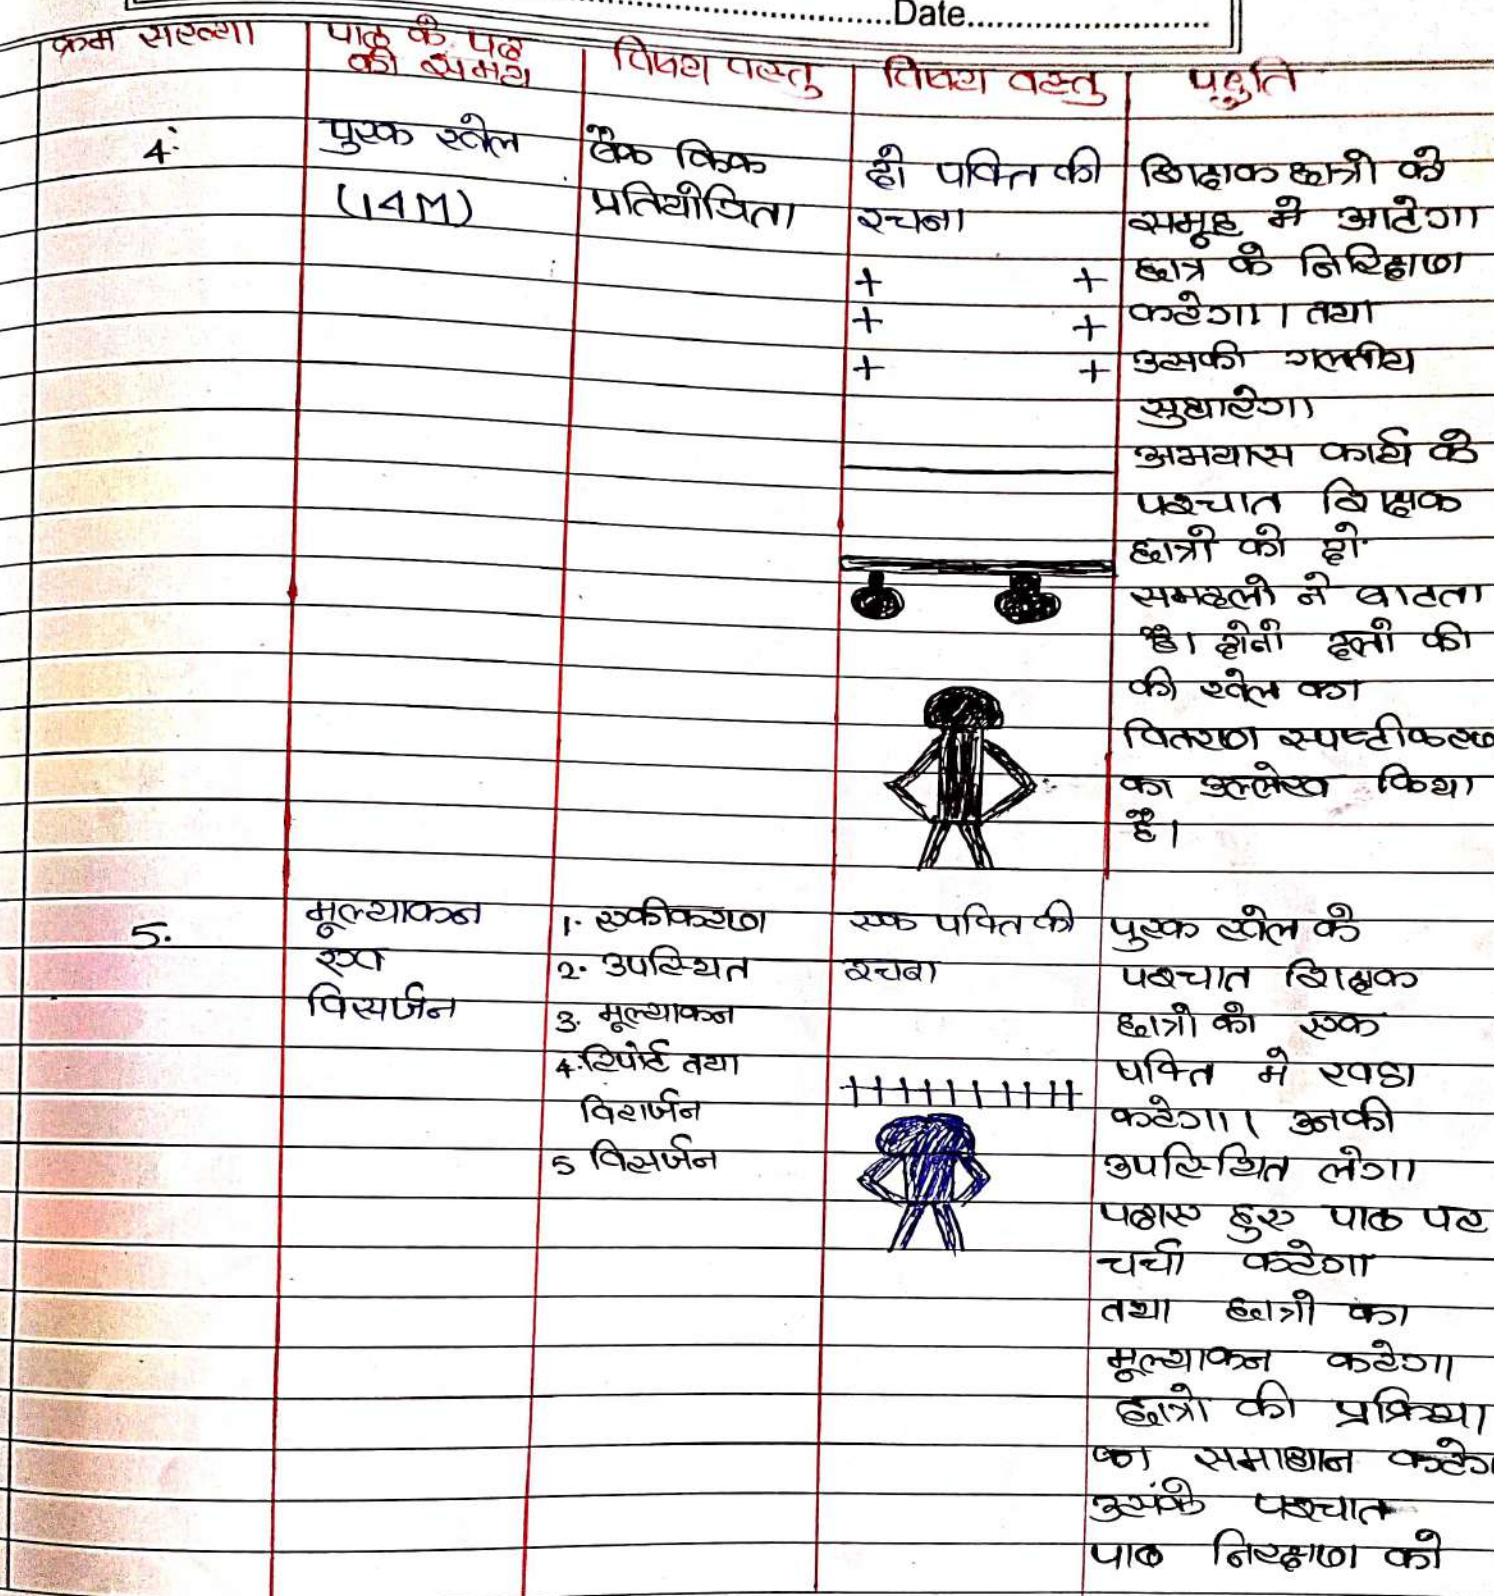 Date
क्रम सख्या
पाठ के पद
की समय
विषय वस्तु
विषय वस्तु
पद्धति
4.
पुरक खेल
(14M)
बैक किक
प्रतियोगिता
दो पक्ति की
रचना
शिक्षक छात्रो को
समूह मे
छात्र के
करेगा। तथा
उसकी गलतीय
सुधारेगा
अभयास कार्य के
पश्चात शिक्षक
छात्रो को दो
समदलो ने बाटता
है। दोनो दलो की
की खेल का
वितरण स्पष्टीकरण
का उल्लेख किया
है।
5.
मूल्याकन
एव
विसर्जन
1. एकीकरण
2. उपस्थित
3. मूल्याकन
4. रिपोर्ट तथा
विशर्जन
5 विसर्जन
एक पक्ति की
रचना
पुरक खेल के
पश्चात शिक्षक
छात्रो को एक
पक्ति मे खडा
करेगा। उनकी
उपस्थित लेगा
पढाए हुए पाठ पर
चर्चा करेगा
तथा छात्रो का
मूल्याकन करेगा
छात्रो की प्रक्रिया
का समाधान
उसके पश्चात
पाठ को